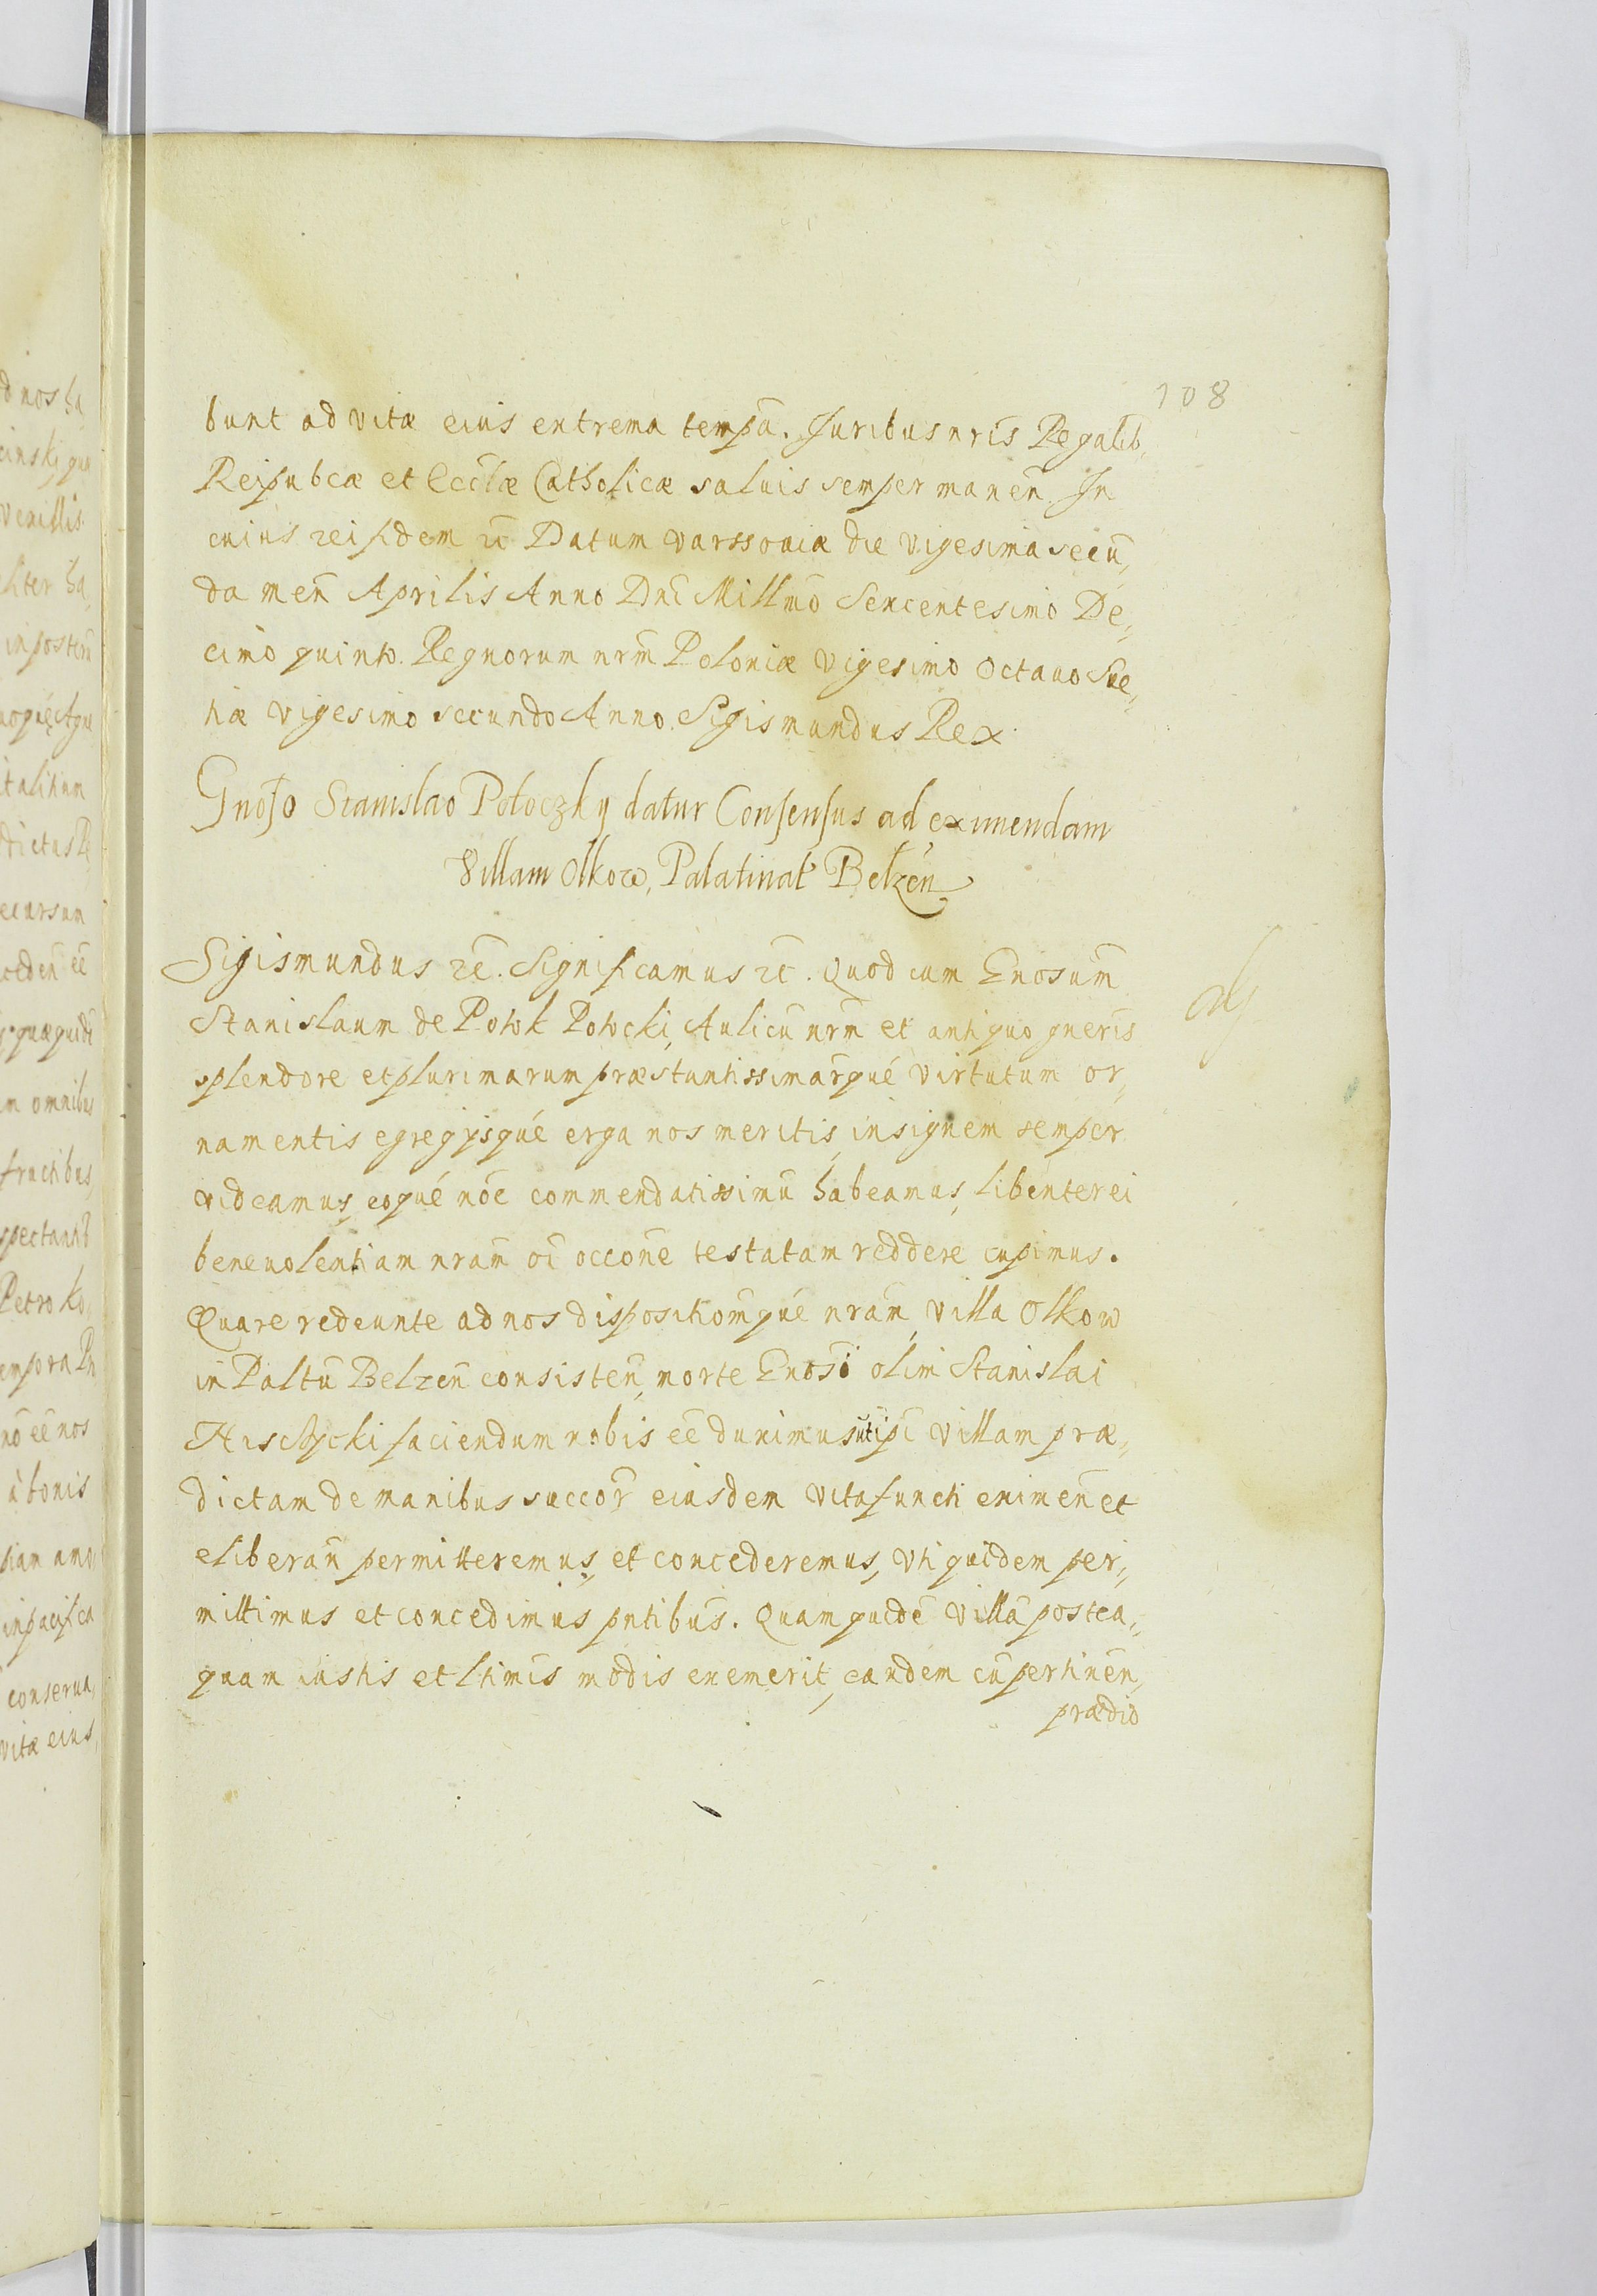 108
bunt ad vitæ eius extrema tempā. Juribus nrīs Regalib,
Reipubcæ et Eccłæ Catholicæ saluis semper manēn. In
cuius rei fidem zc̄ Datum Varssouiæ die Vigesima secū,,
da mēn Aprilis Anno Dnī Millmō Sexcentesimo De,,
cimo quinto. Regnorum nrm̄ Poloniæ Vigesimo Octauo Sue,,
tiæ Vigesimo secundo Anno. Sigismundus Rex.
Gnoso Stanislao Potoczky datur Consensus ad eximendam
Villam Olkow, Palatinat Belzēn
Sigismundus zc̄. Significamus zc̄. Quod cum Gnosum̄
Stanislaum de Potok Potocki, Aulicū nrm̄ et antiquo gneris
splendore et plurimarum præstantissimarqué virtutum or,,
namentis egregijsqué erga nos meritis, insignem semper
videamus, eoqué nōe commendatissimū habeamus, libenter ei
beneuolentiam nram̄ oī occonē testatam reddere cupimus.
Quare redeunte ad nos dispositiom̄qué nram̄, villa Olkow
in Paltū Belzen̄ consisten̄, morte Gnosī olim Stanislai
faciendum nobis eē duximus uti ipī Villam præ,,
dictam de manibus succor̄ eiusdem vita functi eximen̄ et
eliberan̄ permitteremus, et concederemus, Vti quidem per,,
mittimus et concedimus pntibus̄. Quam quidē villā postea,,
quam iustis et ltimis modis exemerit, eandem cū pertinēn,
prædio